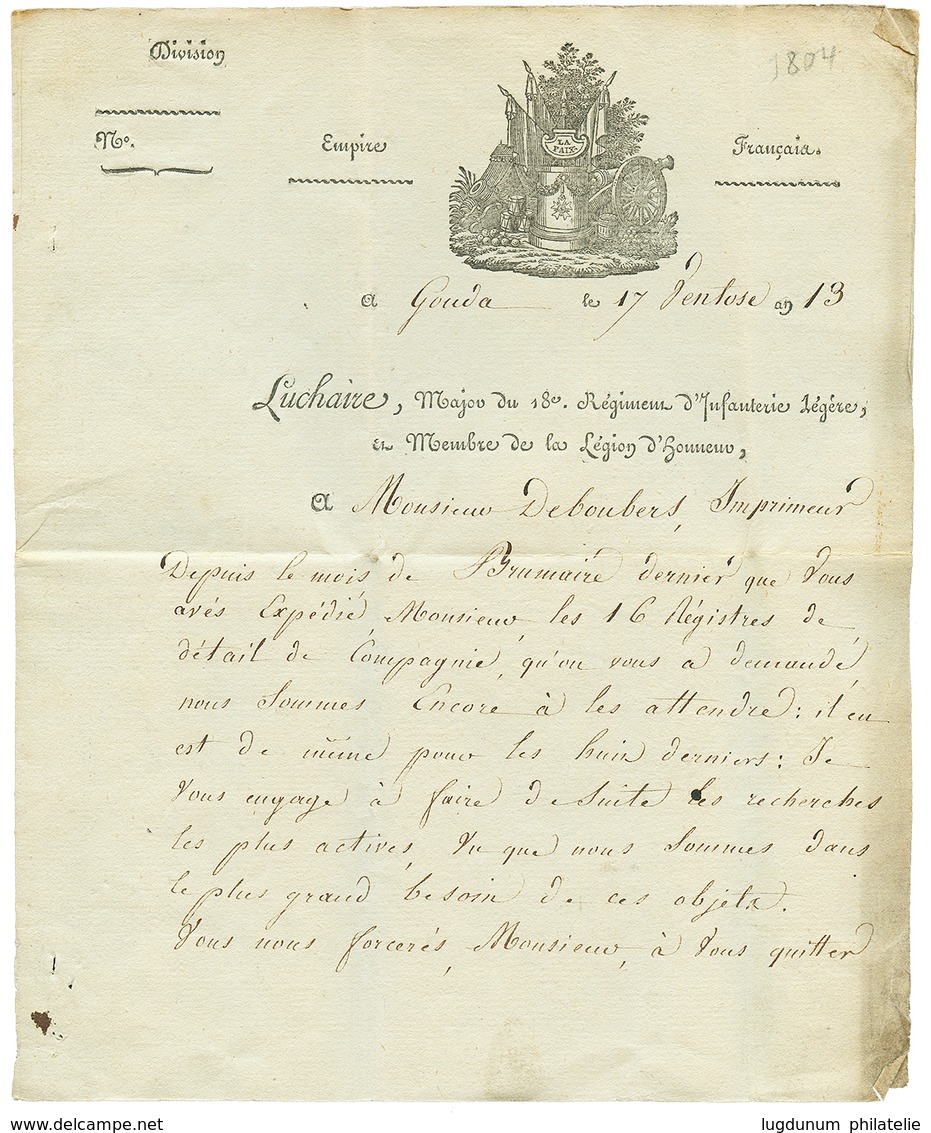 Division
1804
Nº.
Empire
LA
PAIX
Français.
A Gouda le 17 Ventose an 13
Luchaire, Major du 18e. Régiment d'Infanterie Légère,
et Membre de la Légion d'Honneur,
A Monsieur Deboubers, Imprimeur
Depuis le mois de Brumaire dernier que Vous
avés Expédié, Monsieur, les 16 Régistres de
détail de Compagnie, qu'on vous a demandé,
nous Sommes Encore à les attendre : il en
est de même pour les huit derniers : Je
Vous engage à faire de Suite les recherches
les plus actives, Vu que nous Sommes dans
le plus grand besoin de ces objets.
Vous nous forcerés, Monsieur, à Vous quitter
delcampe.net
lugdunum philatelie